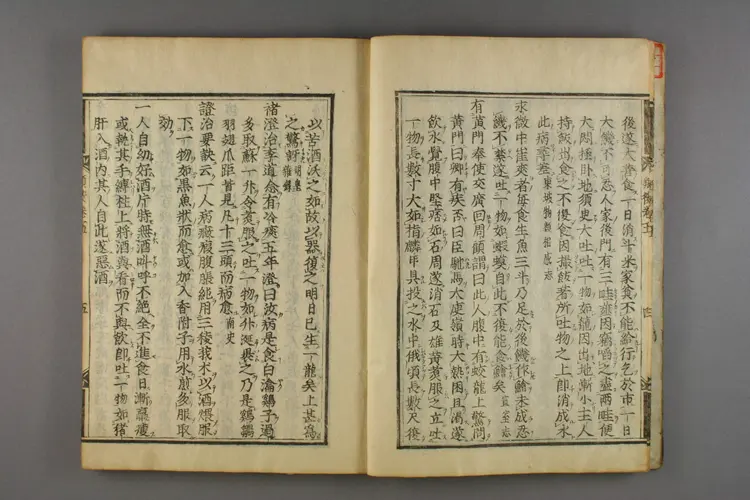 後遂大嗜食一日消斗米家貧不能給行乞於市一日
大饑不可忍人家後門有三畦薤因竊啗之盡兩畦便
大悶極卧地須臾大吐吐一物如籠因出地漸小主人
持飯飼食之不復食因撮飯著所吐物之上即消成水
此病寻瘥
永徽中崔爽者每食生魚三斗乃足於後饑作鱠未成忍
饑不禁遂吐一物如蝦蟆自此不復能食鱠矣
有黃門奉使交廣回周顧謂曰此人腹中有蛟龍上驚問
黃門曰卿有疾否曰臣馳馬大庾嶺時大熱困且渴遂
飲水覺腹中堅痞如石周遂消石及雄黃煮服之立吐
一物長數寸大如指鱗甲具投之水中俄頃長數尺復
以苦酒沃之如故以器覆之明日已生一龍矣上甚為
之驚訝 明皇雜錄
褚澄治李道念有冷疾五年澄曰汝病是食白瀹鷄子過
多取蘇一升令煮服之吐一物如升涎裹之乃是鷄鶵
羽翅爪距皆見凡十三頭而病愈 南史
證治要訣云一人病癥瘕腹脹純用三稜莪朮以酒煨服
下一物如黑魚狀而愈或加入香附子用水煎多服取
効
一人自幼好酒片時無酒叫呼不絕全不進食日漸羸瘦
或執其手縛柱上將酒與看而不與飲即吐一物如猪
肝入酒內其人自此遂惡酒
四
五